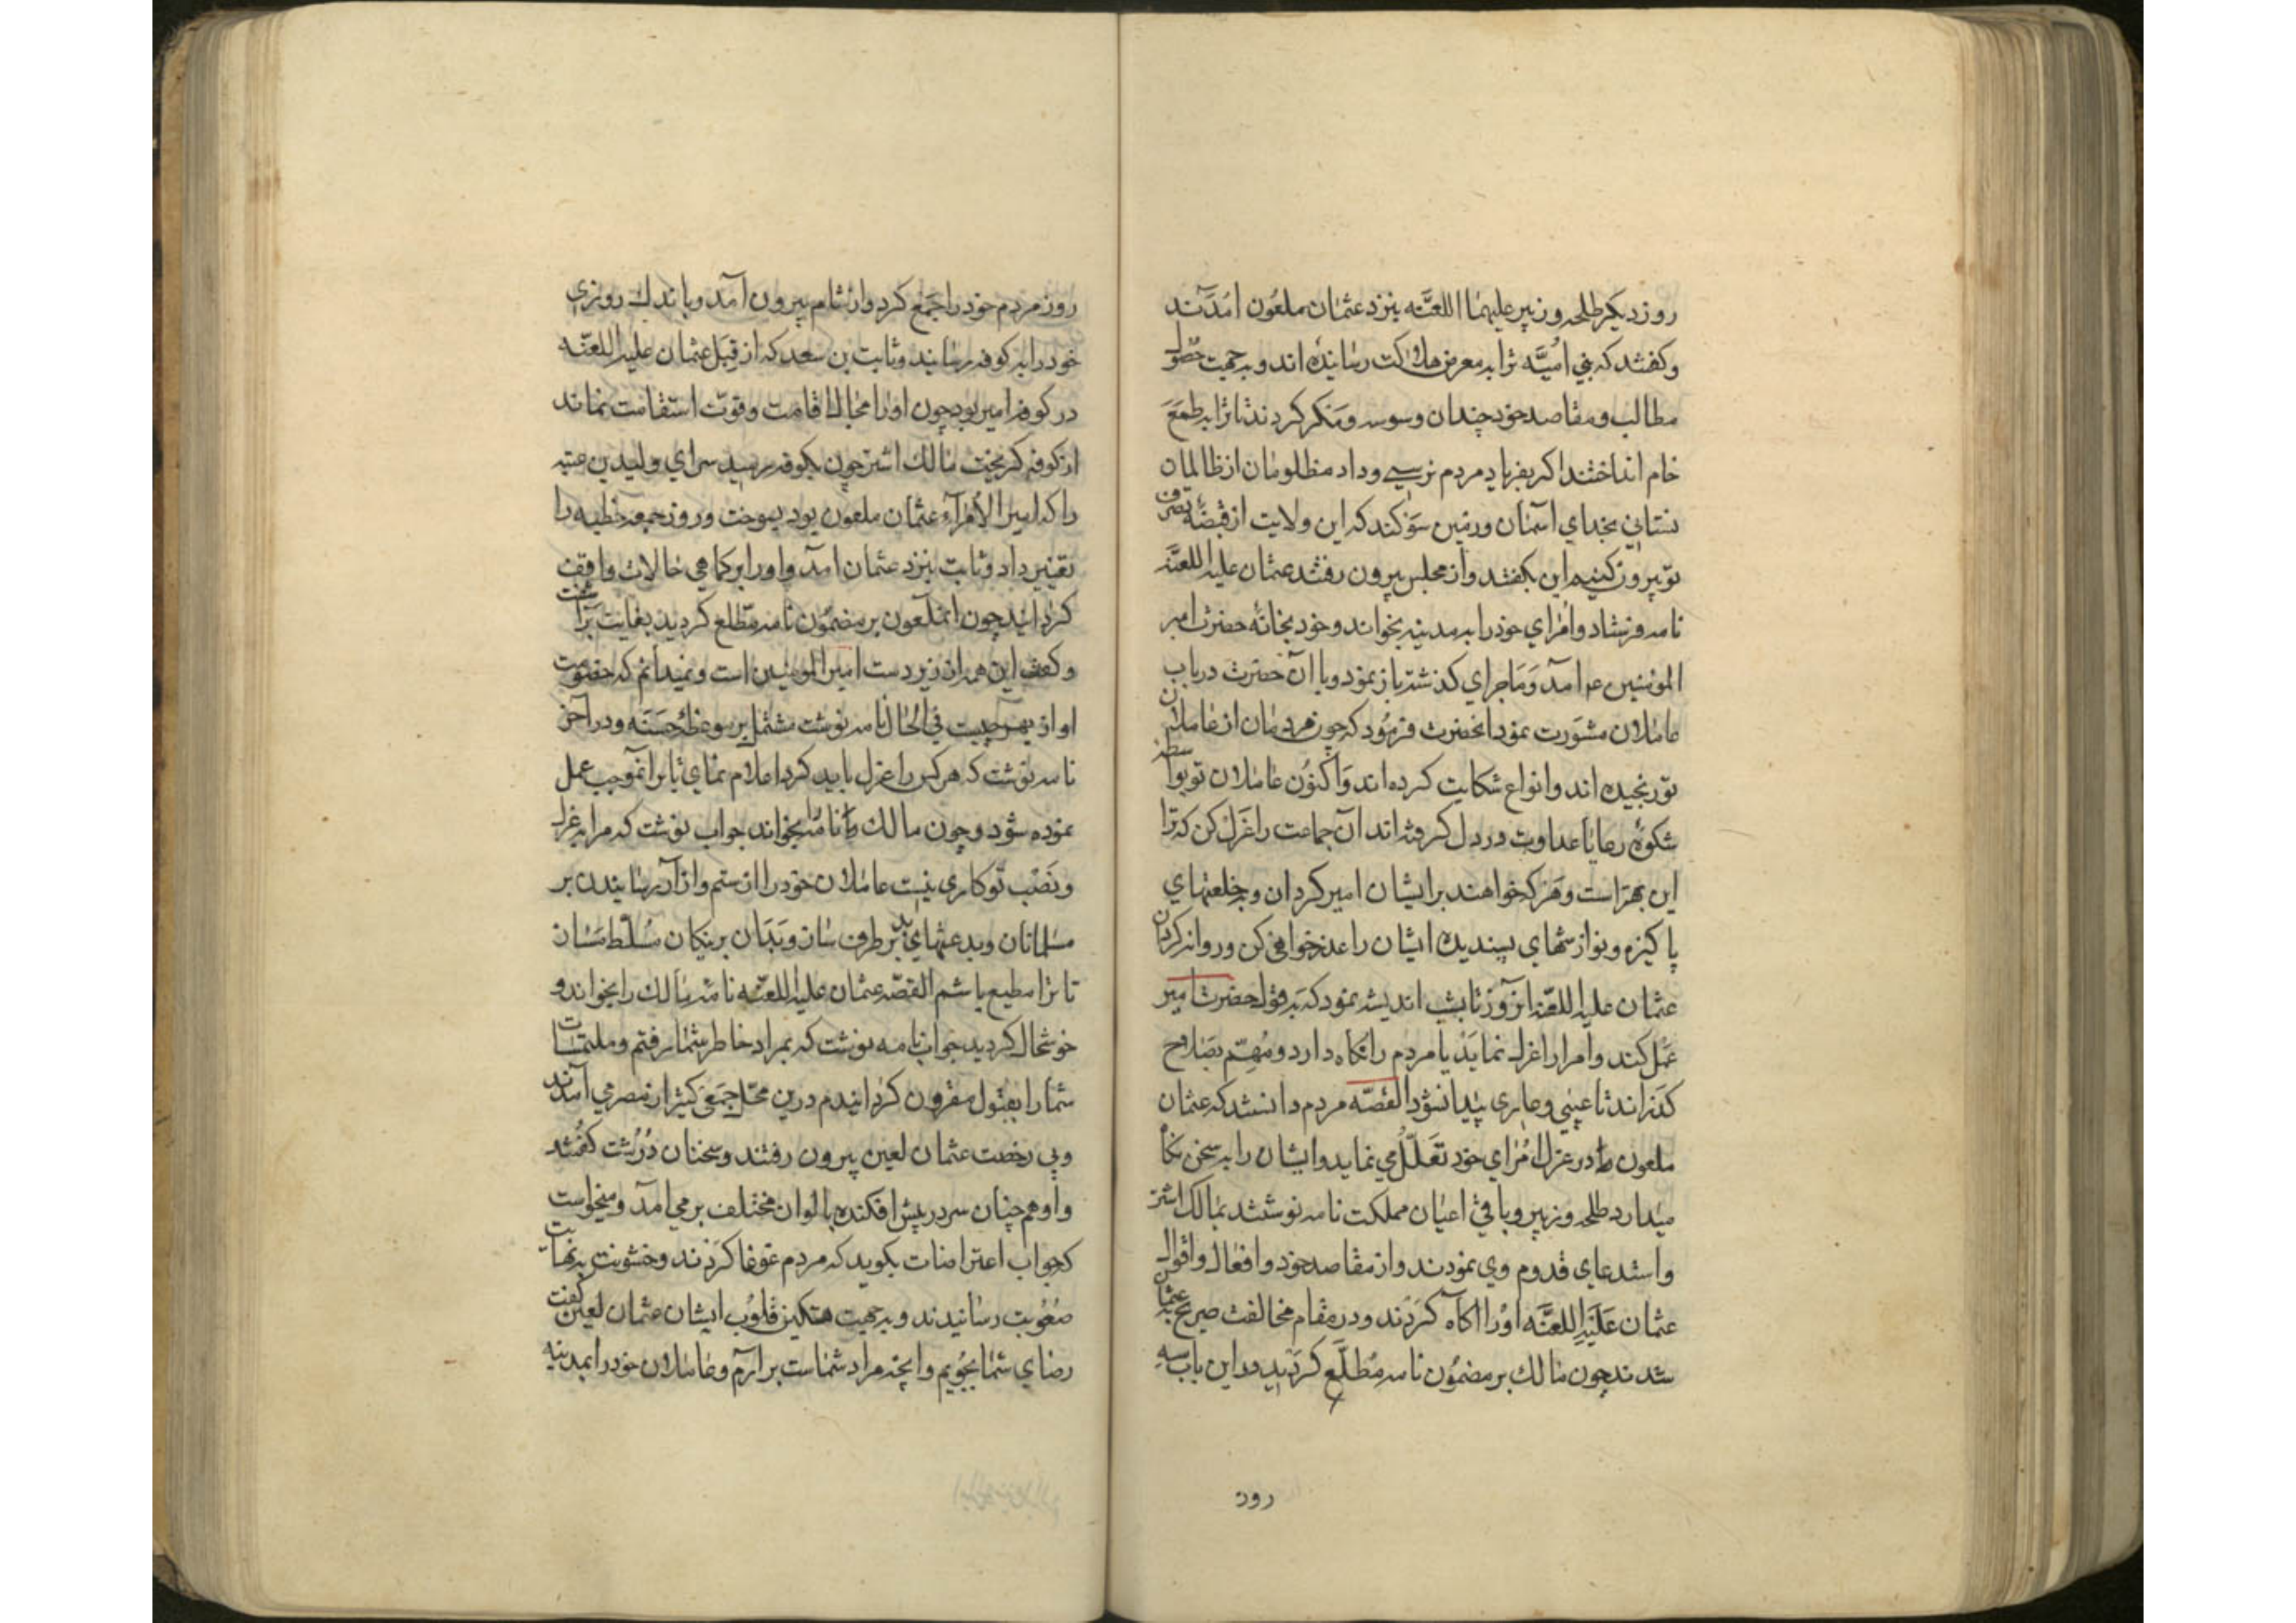 روز دیکر طلحه و زبیر علیهما اللعنَّه بنزد عثمان ملعون آمدند
و کفتند که بنی امیَّه ترا به معرض هلاکت رسانیده اند و به جهت حصول
مطالب و مقاصد خود چندان وسوسه و مکر کردند تا ترا به طمع
خام انداختند اکر بفریاد مردم نرسی و داد مظلومان از ظالمان
نستانی بخدای آسمان و زمین سوکند که این ولایت از قبضهٔ تصرف
تو بیرون کنیم این بکفتند و از مجلس بیرون رفتند عثمان علیه اللعنَّه
نامه فرستاد و امرای خود را به مدینه بخواند و خود بخانهٔ حضرت امیر
المومنین ع آمد و ماجرای کذشته باز نمود و با آن حضرت در باب
عاملان مشورت نمود انحضرت فرمود که چون مردمان از عاملان
تو رنجیده اند و انواع شکایت کرده اند و اکنون عاملان تو بواسطه
شکوهٔ رعایا عداوت در دل کرفته اند آن جماعت را عزل کن که ترا
این بهتر است و هر که خواهند بر ایشان امیر کردان و به خلعتهای
پاکیزه و نوازشهای پسندیده ایشان را عذر خواهی کن و روانه کردان
عثمان علیه اللعنه انروز تا بشب اندیشه نمود که به قول حضرت امیر
عمل کند و امرا را عزل نماید یا مردم را نکاه دارد و مهم بصلاح
کذراند تا عیبی و عاری پیدا نشود القصّه مردم دانستند که عثمان
ملعون در عزل امرای خود تعلّل می نماید و ایشان را به سخن نکاه
میدارد طلحه و زبیر و باقی اعیان مملکت نامه نوشتند بمالک اشتر
و استدعای قدوم وی نمودند و از مقاصد خود و افعال و اقوال
عثمان علیه اللعنَّه او را اکاه کردند و در مقام مخالفت صریح عثمان
شدند چون مالک بر مضمون نامه مطّلع کردید در این باب سه
روز
روز مردم خود را جمع کرد و از شام بیرون آمد و باندک روزی
خود را به کوفه رسانید و ثابت بن سعد که از قبل عثمان علیه اللعنّه
در کوفه امیر بود چون او را مجال اقامت و قوت استقامت نماند
از کوفه کریخت مالک اشتر چون بکوفه رسید سرای ولید بن عتبه
را که امیر الامرآء عثمان ملعون بود بسوخت و روز جمعه خطبه را
تغییر داد و ثابت بنزد عثمان آمد و او را بر کماهی حالات واقف
کردانید چون انملعون بر مضمون نامه مطّلع کردید بغایت برآشفت
و کفت این همه از زیر دست امیر المومنین است و نمیدانم که خصومت
او از بهر چیست فی الحال نامه نوشت مشتمل بر موعظهٔ حسنه و در آخر
نامه نوشت که هر کس را عزل باید کرد اعلام نمای تا بر انموجب عمل
نموده شود و چون مالک نامه بخواند جواب نوشت که مرا به عزل
و نصب تو کاری نیست عاملان خود را از ستم و از آزار رسانیدن بر
مسلمانان و بدعتهای بد بر طرف سان و بدان بر نیکان مسلّط مسان
تا ترا مطیع باشم القصّه عثمان علیه اللعنّه نامهٔ مالک را بخواند و
خوشحال کردید جواب نامه نوشت که بمراد خاطر شما رفتم و ملتمسات
شما را بقبول مقرون کردانیدم درین محل جمعی کثیر از مصر می آمدند
و بی رخصت عثمان لعین بیرون رفتند و سخنان درشت کفتند
و او همچنان سر در پیش افکنده با لوان مختلف بر می آمد و میخواست
که جواب اعتراضات بکوید که مردم غوغا کردند و خشونت بنهایت
صعوبت رسانیدند و به جهت تسکین قلوب ایشان عثمان لعین کفت
رضای شما بجویم و انچه مراد شماست بر آرم و عاملان خود را بمدینه